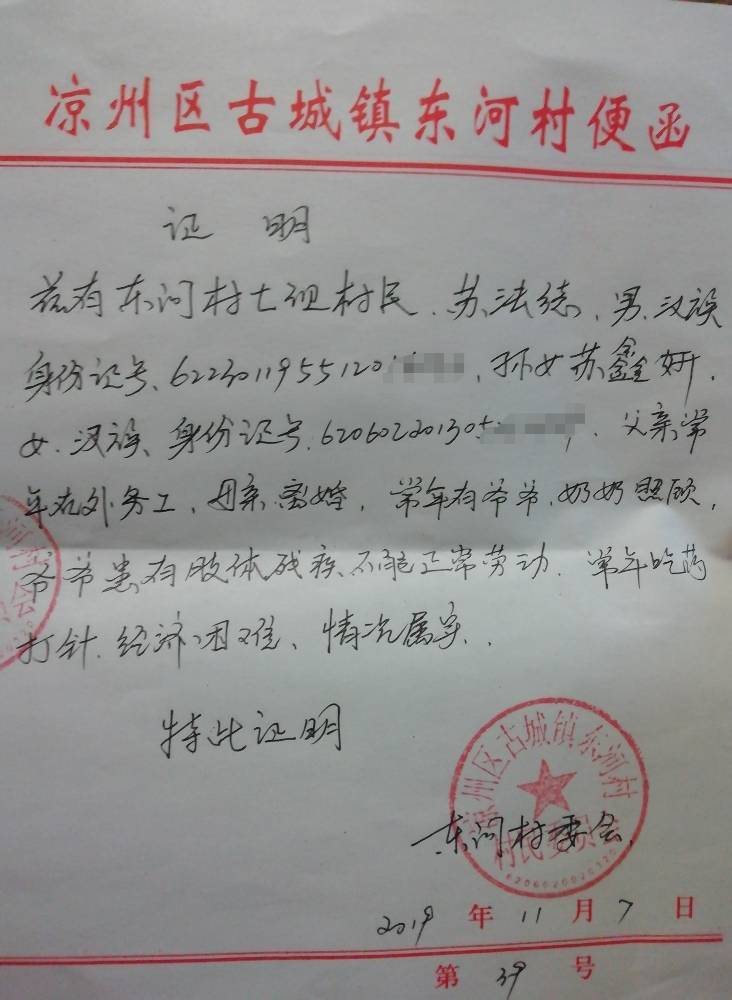 凉州区古城镇东河村便函
证 明
兹有东河村七坝村民、苏法德,男、汉族
身份证号、6223011955120,孙女苏鑫妍,
女、汉族、身份证号、62060220130,父亲常
年在外务工,母亲离婚,常年有爷爷、奶奶照顾,
爷爷患有肢体残疾、不能正常劳动、常年吃药
打针、经济困难、情况属实、
特此证明
凉州区古城镇东河村
村民委员会
6206020020320
东河村委会
2019年11月7日
第39号
河村
会